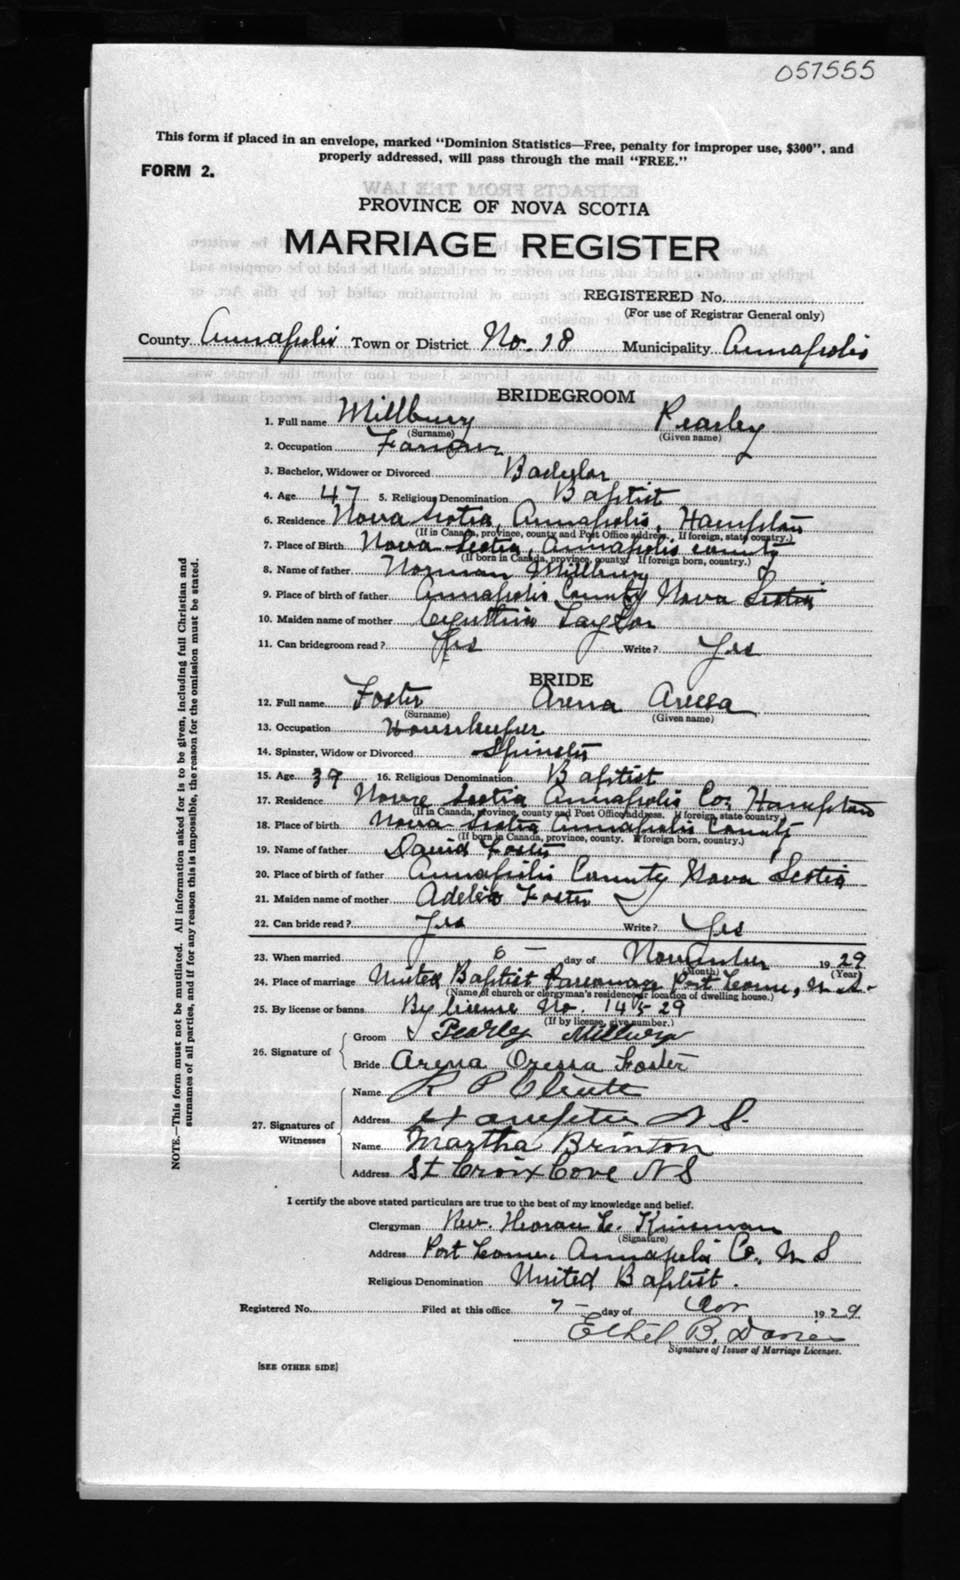 057555
This form if placed in an envelope, marked "Dominion Statistics—Free, penalty for improper use, $300", and
properly addressed, will pass through the mail "FREE."
FORM 2.
PROVINCE OF NOVA SCOTIA
MARRIAGE REGISTER
REGISTERED No.
(For use of Registrar General only)
County Annapolis Town or District No. 18 Municipality Annapolis
BRIDEGROOM
1. Full name Millbury Pearley
(Surname) (Given name)
2. Occupation Farmer
3. Bachelor, Widower or Divorced Bachelor
4. Age 47 5. Religious Denomination Baptist
6. Residence Nova Scotia, Annapolis, Hampton
(If in Canada, province, county and Post Office address. If foreign, state country.)
7. Place of Birth Nova Scotia, Annapolis County
(If born in Canada, province, county. If foreign born, country.)
8. Name of father Norman Millbury
9. Place of birth of father Annapolis County Nova Scotia
10. Maiden name of mother Taylor
11. Can bridegroom read? Yes Write? Yes
BRIDE
12. Full name Foster Arena
(Surname) (Given name)
13. Occupation Housekeeper
14. Spinster, Widow or Divorced Spinster
15. Age 39 16. Religious Denomination Baptist
17. Residence Nova Scotia Annapolis Co. Hampton
(If in Canada, province, county and Post Office address. If foreign, state country.)
18. Place of birth Nova Scotia Annapolis County
(If born in Canada, province, county. If foreign born, country.)
19. Name of father David Foster
20. Place of birth of father Annapolis County Nova Scotia
21. Maiden name of mother Foster
22. Can bride read? Yes Write? Yes
23. When married 6 — day of November 1929
(Month) (Year)
24. Place of marriage United Baptist Parsonage Port Lorne, N.S.
(Name of church or clergyman's residence or location of dwelling house.)
25. By license or banns By license No. 14529
(If by license, give number.)
26. Signature of
Groom Pearley Millbury
Bride Arena Oressa Foster
27. Signatures of Witnesses
Name R P
Address Hampton N S.
Name Martha Brinton
Address St Croix Cove N S
I certify the above stated particulars are true to the best of my knowledge and belief.
Clergyman Rev. Horace L. Kinsman
(Signature)
Address Port Lorne. Annapolis Co. N S
Religious Denomination United Baptist.
Registered No. Filed at this office 7 — day of Nov 1929
Ethel B.
Signature of Issuer of Marriage Licenses.
[SEE OTHER SIDE]
NOTE.—This form must not be mutilated. All information asked for is to be given, including full Christian and
surnames of all parties, and if for any reason this is impossible, the reason for the omission must be stated.